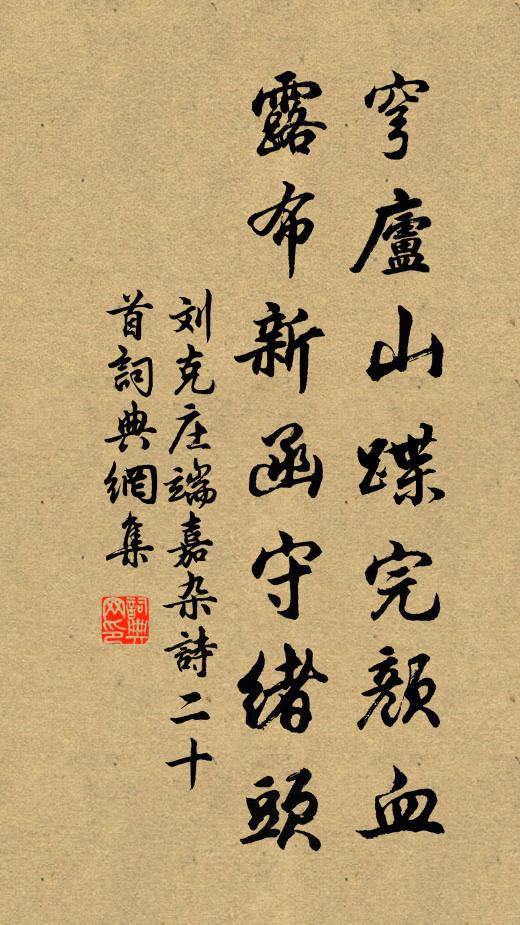 穹廬山蹀完顏血
露布新函守緒頭
刘克庄端嘉杂詩二十
首詞典網集
詞典网印